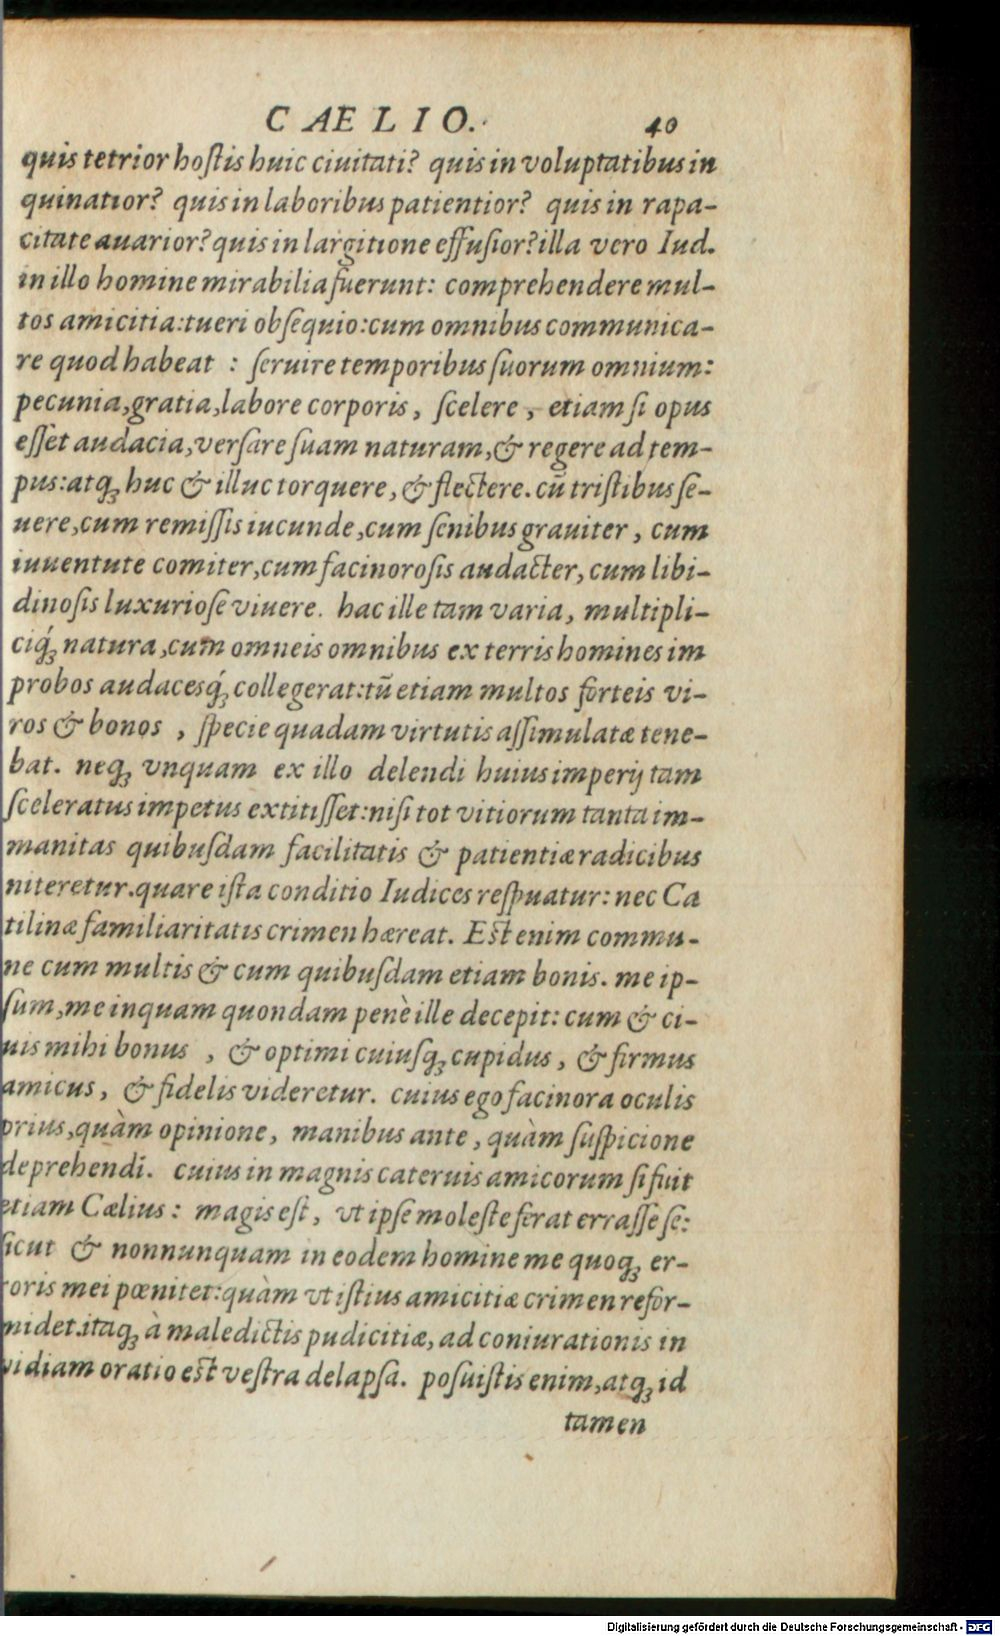 C AE L I O. 40
quis tetrior hoſtis huic ciuitati? quis in voluptatibus in
quinatior? quis in laboribus patientior? quis in rapa-
citate auarior? quis in largitione effuſior? illa vero Iud.
in illo homine mirabilia fuerunt: comprehendere mul-
tos amicitia: tueri obſequio: cum omnibus communica-
re quod habeat : ſeruire temporibus ſuorum omnium:
pecunia, gratia, labore corporis, ſcelere, etiam ſi opus
eſſet audacia, verſare ſuam naturam, & regere ad tem-
pus: atq; huc & illuc torquere, & flectere. cũ triſtibus ſe-
uere, cum remiſſis iucunde, cum ſenibus grauiter, cum
iuuentute comiter, cum facinoroſis audacter, cum libi-
dinoſis luxurioſe viuere. hac ille tam varia, multipli-
ciq́; natura, cum omneis omnibus ex terris homines im
probos audacesq́; collegerat: tũ etiam multos forteis vi-
ros & bonos , ſpecie quadam virtutis aſſimulatæ tene-
bat. neq; vnquam ex illo delendi huius imperij tam
ſceleratus impetus extitiſſet: niſi tot vitiorum tanta im-
manitas quibuſdam facilitatis & patientiæ radicibus
niteretur. quare iſta conditio Iudices reſpuatur: nec Ca
tilinæ familiaritatis crimen hæreat. Eſt enim commu-
ne cum multis & cum quibuſdam etiam bonis. me ip-
ſum, me inquam quondam penè ille decepit: cum & ci-
uis mihi bonus , & optimi cuiuſq; cupidus, & firmus
amicus, & fidelis videretur. cuius ego facinora oculis
prius, quàm opinione, manibus ante, quàm ſuſpicione
deprehendi. cuius in magnis cateruis amicorum ſi fuit
etiam Cælius: magis eſt, vt ipſe moleſte ferat erraſſe ſe:
ſicut & nonnunquam in eodem homine me quoq; er-
roris mei pœnitet: quàm vt iſtius amicitiæ crimen refor-
midet. itaq; à maledictis pudicitiæ, ad coniurationis in
vidiam oratio eſt veſtra delapſa. poſuiſtis enim, atq; id
tamen
Digitalisierung gefördert durch die Deutsche Forschungsgemeinschaft - DFG